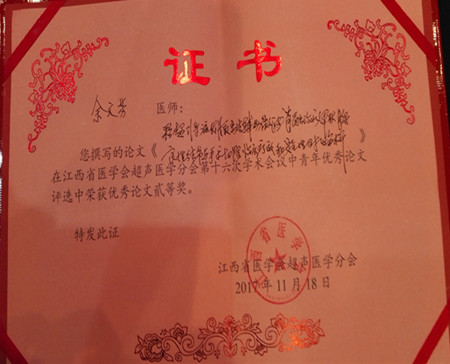 证书
余文芳 医师：
您撰写的论文《 》
在江西省医学会超声医学分会第十六次学术会议中青年优秀论文
评选中荣获优秀论文贰等奖。
特发此证
江西省医学会超声医学分会
2017年11月18日